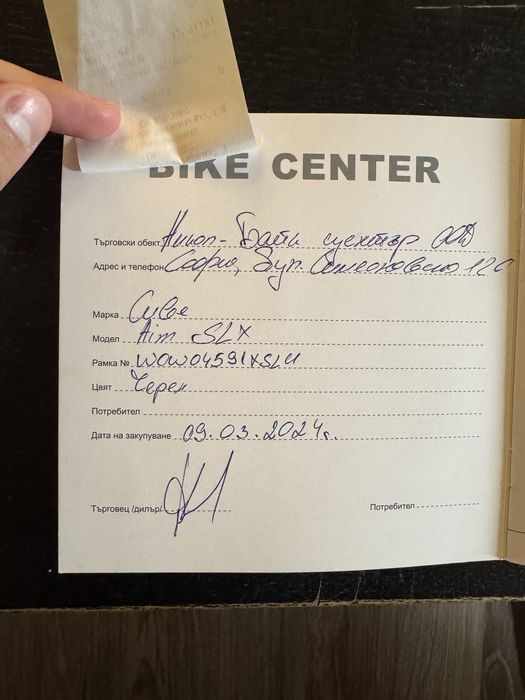 BIKE CENTER
Търговски обект Никол-Байк център ООД
Адрес и телефон София, бул. Симеоновско 120
Марка Cube
Модел Aim SLX
Рамка № WOW04591XSL4
Цвят Черен
Потребител
Дата на закупуване 09.03.2024г.
Търговец /дилър/
Потребител